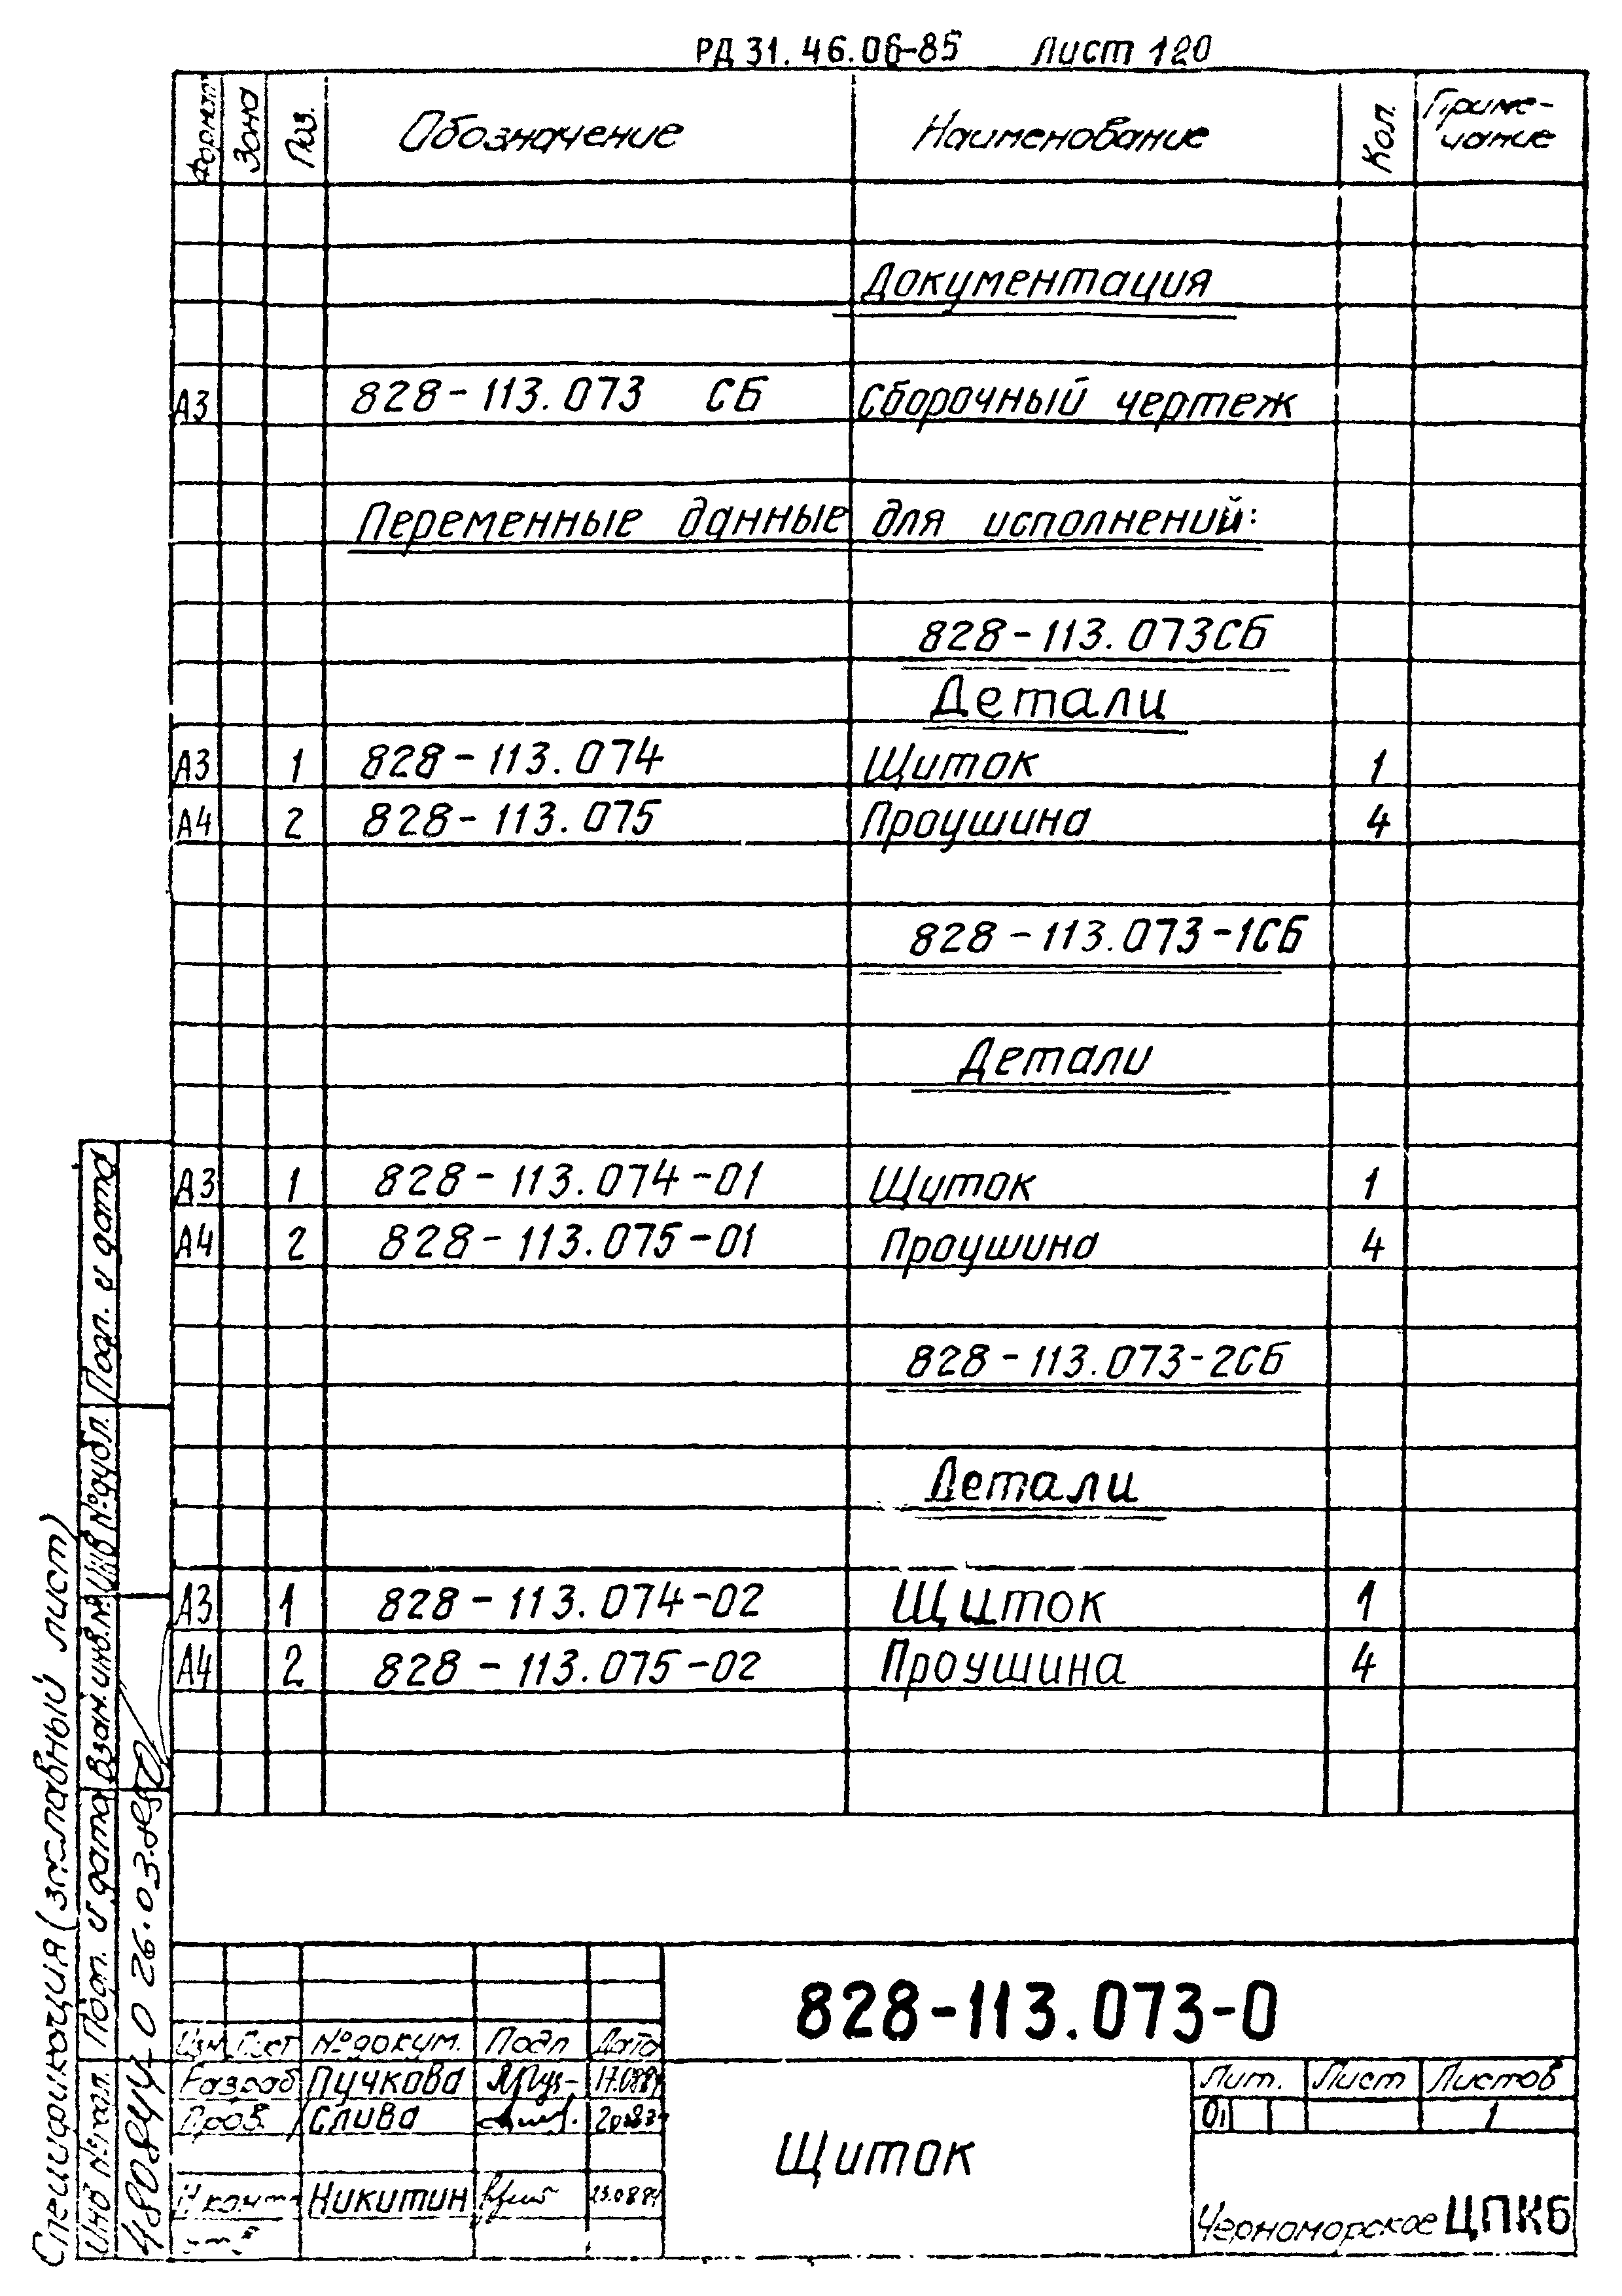 РД 31.46.06-85 Лист 120
Формат Зона Поз. Обозначение Наименование Кол. Приме-
чание
Документация
А3 828-113.073 СБ Сборочный чертеж
Переменные данные для исполнений:
828-113.073СБ
Детали
А3 1 828-113.074 Щиток 1
А4 2 828-113.075 Проушина 4
828-113.073-1СБ
Детали
А3 1 828-113.074-01 Щиток 1
А4 2 828-113.075-01 Проушина 4
828-113.073-2СБ
Детали
А3 1 828-113.074-02 Щиток 1
А4 2 828-113.075-02 Проушина 4
Спецификация (заглавный лист)
Подп. и дата
Инв №дубл.
Взам.инв.№
Подп. и дата
26.03.
Инв №подл.
828-113.073-0
Изм. Лист №докум. Подп Дата
Разраб Пучкова
Пров. Слива
Н.конт Никитин
Щиток
Лит. Лист Листов
1
Черноморское ЦПКБ